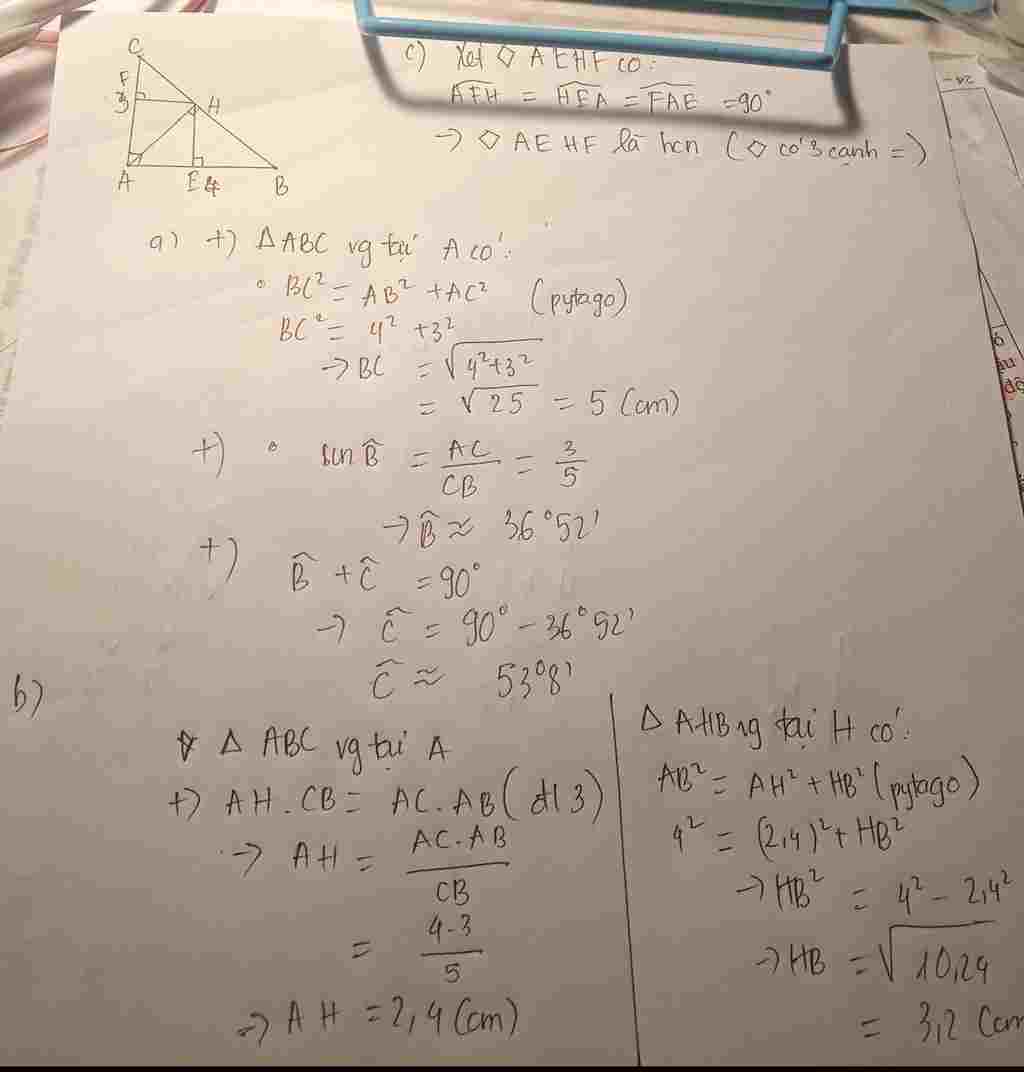 C
F
3
H
A
E 4
B
c) Xét ◇ AEHF có:
AFH = HEA = FAE = 90°
→ ◇ AEHF là hcn (◇ có 3 cạnh =)
a) +) ΔABC vg tại A có:
∘ BC² = AB² + AC² (pytago)
BC² = 4² + 3²
→ BC = √4²+3²
= √25 = 5 (cm)
+) ∘ sin B̂ = AC/CB = 3/5
→ B̂ ≈ 36°52'
+) B̂ + Ĉ = 90°
→ Ĉ = 90° - 36°52'
Ĉ ≈ 53°8'
b)
Δ ABC vg tại A
+) AH . CB = AC . AB (đl 3)
→ AH = AC.AB/CB
= 4.3/5
→ AH = 2,4 (cm)
Δ AHB vg tại H có:
AB² = AH² + HB² (pytago)
4² = (2,4)² + HB²
→ HB² = 4² - 2,4²
→ HB = √10,24
= 3,2 (cm